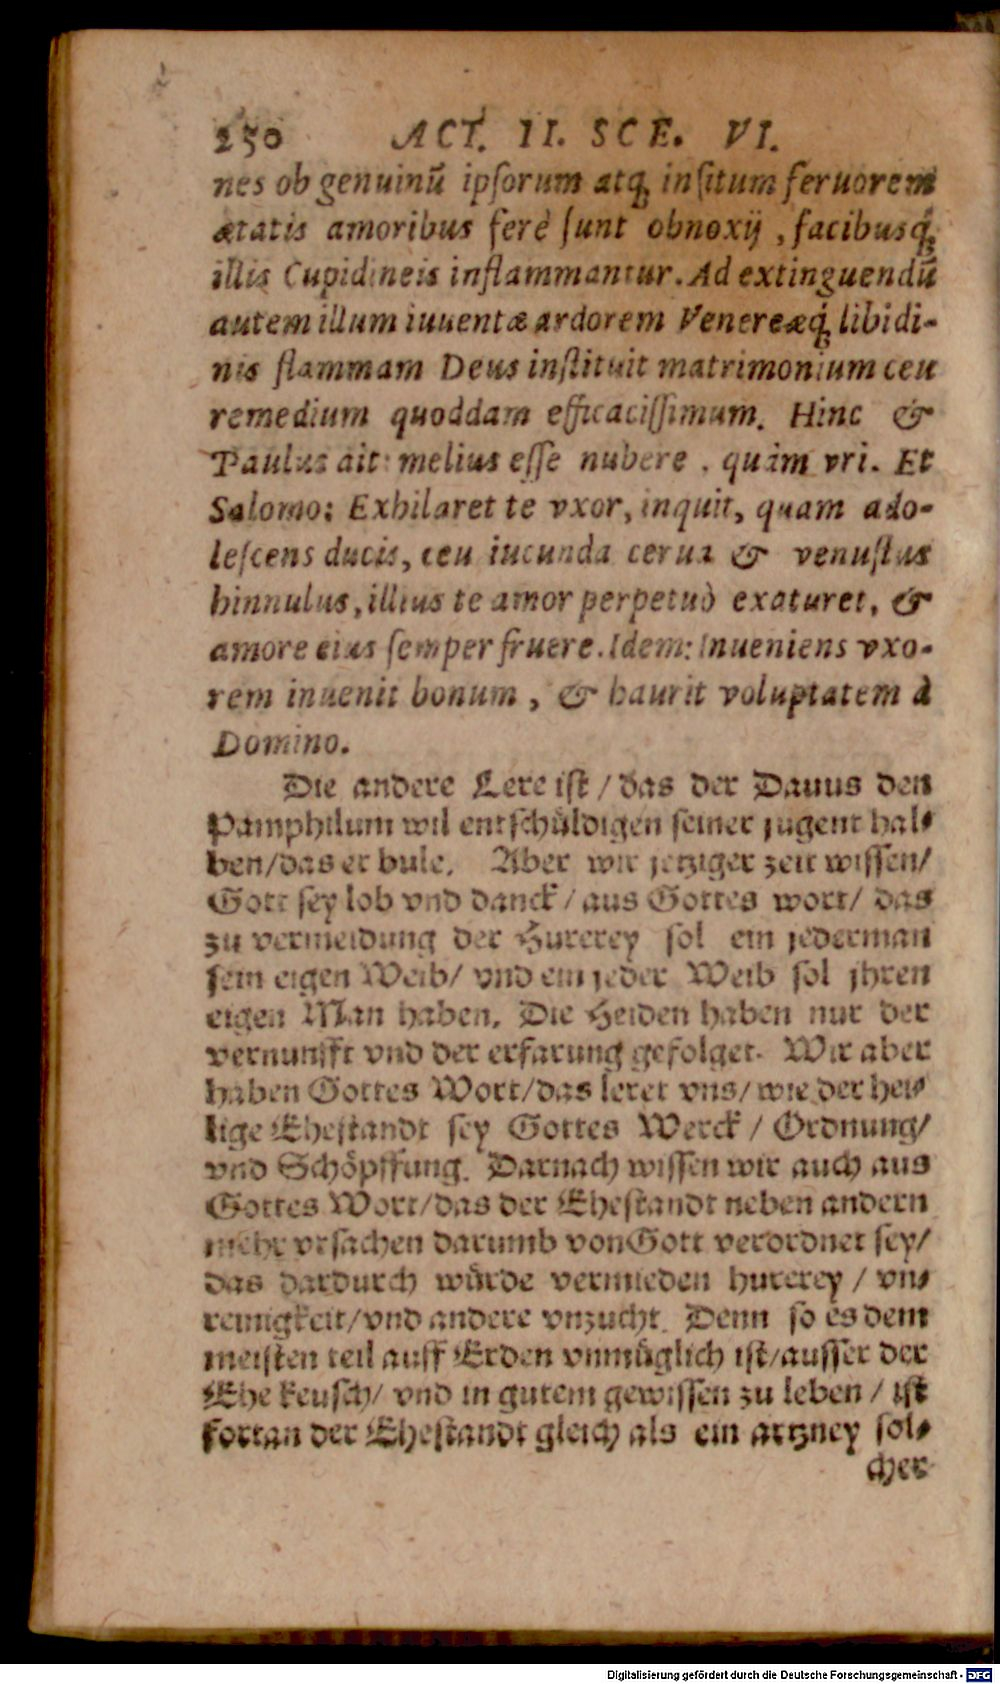 250 ACT. II. SCE. VI.
nes ob genuinũ ipſorum atq́; inſitum feruorem
ætatis amoribus ferè ſunt obnoxij, facibusq́;
illis Cupidineis inflammantur. Ad extinguendũ
autem illum iuuentæ ardorem Venereæq́; libidi-
nis flammam Deus inſtituit matrimonium ceu
remedium quoddam efficaciſſimum. Hinc &
Paulus ait: melius eſſe nubere, quàm vri. Et
Salomo: Exhilaret te vxor, inquit, quam ado-
leſcens ducis, ceu iucunda cerua & venuſtus
hinnulus, illius te amor perpetuò exaturet, &
amore eius ſemper fruere. Idem: Inueniens vxo-
rem inuenit bonum, & haurit voluptatem à
Domino.
Die andere Lere iſt / das der Dauus den
Pamphilum wil entſchůldigen ſeiner jugent hal⸗
ben/das er bule. Aber wir jetziger zeit wiſſen/
Gott ſey lob vnd danck / aus Gottes wort/ das
zu vermeidung der Hurerey ſol ein jederman
ſein eigen Weib/ vnd ein jeder Weib ſol jhren
eigen Man haben. Die Heiden haben nur der
vernunfft vnd der erfarung gefolget. Wir aber
haben Gottes Wort/das leret vns/ wie der hei⸗
lige Eheſtandt ſey Gottes Werck / Ordnung/
vnd Schöpffung. Darnach wiſſen wir auch aus
Gottes Wort/das der Eheſtandt neben andern
mehr vrſachen darumb von Gott verordnet ſey/
das dardurch würde vermieden hurerey / vn⸗
reinigkeit/vnd andere vnzucht. Denn ſo es dem
meiſten teil auff Erden vnmüglich iſt/auſſer der
Ehe keuſch/ vnd in gutem gewiſſen zu leben / iſt
fortan der Eheſtandt gleich als ein artzney ſol⸗
cher
Digitalisierung gefördert durch die Deutsche Forschungsgemeinschaft - DFG